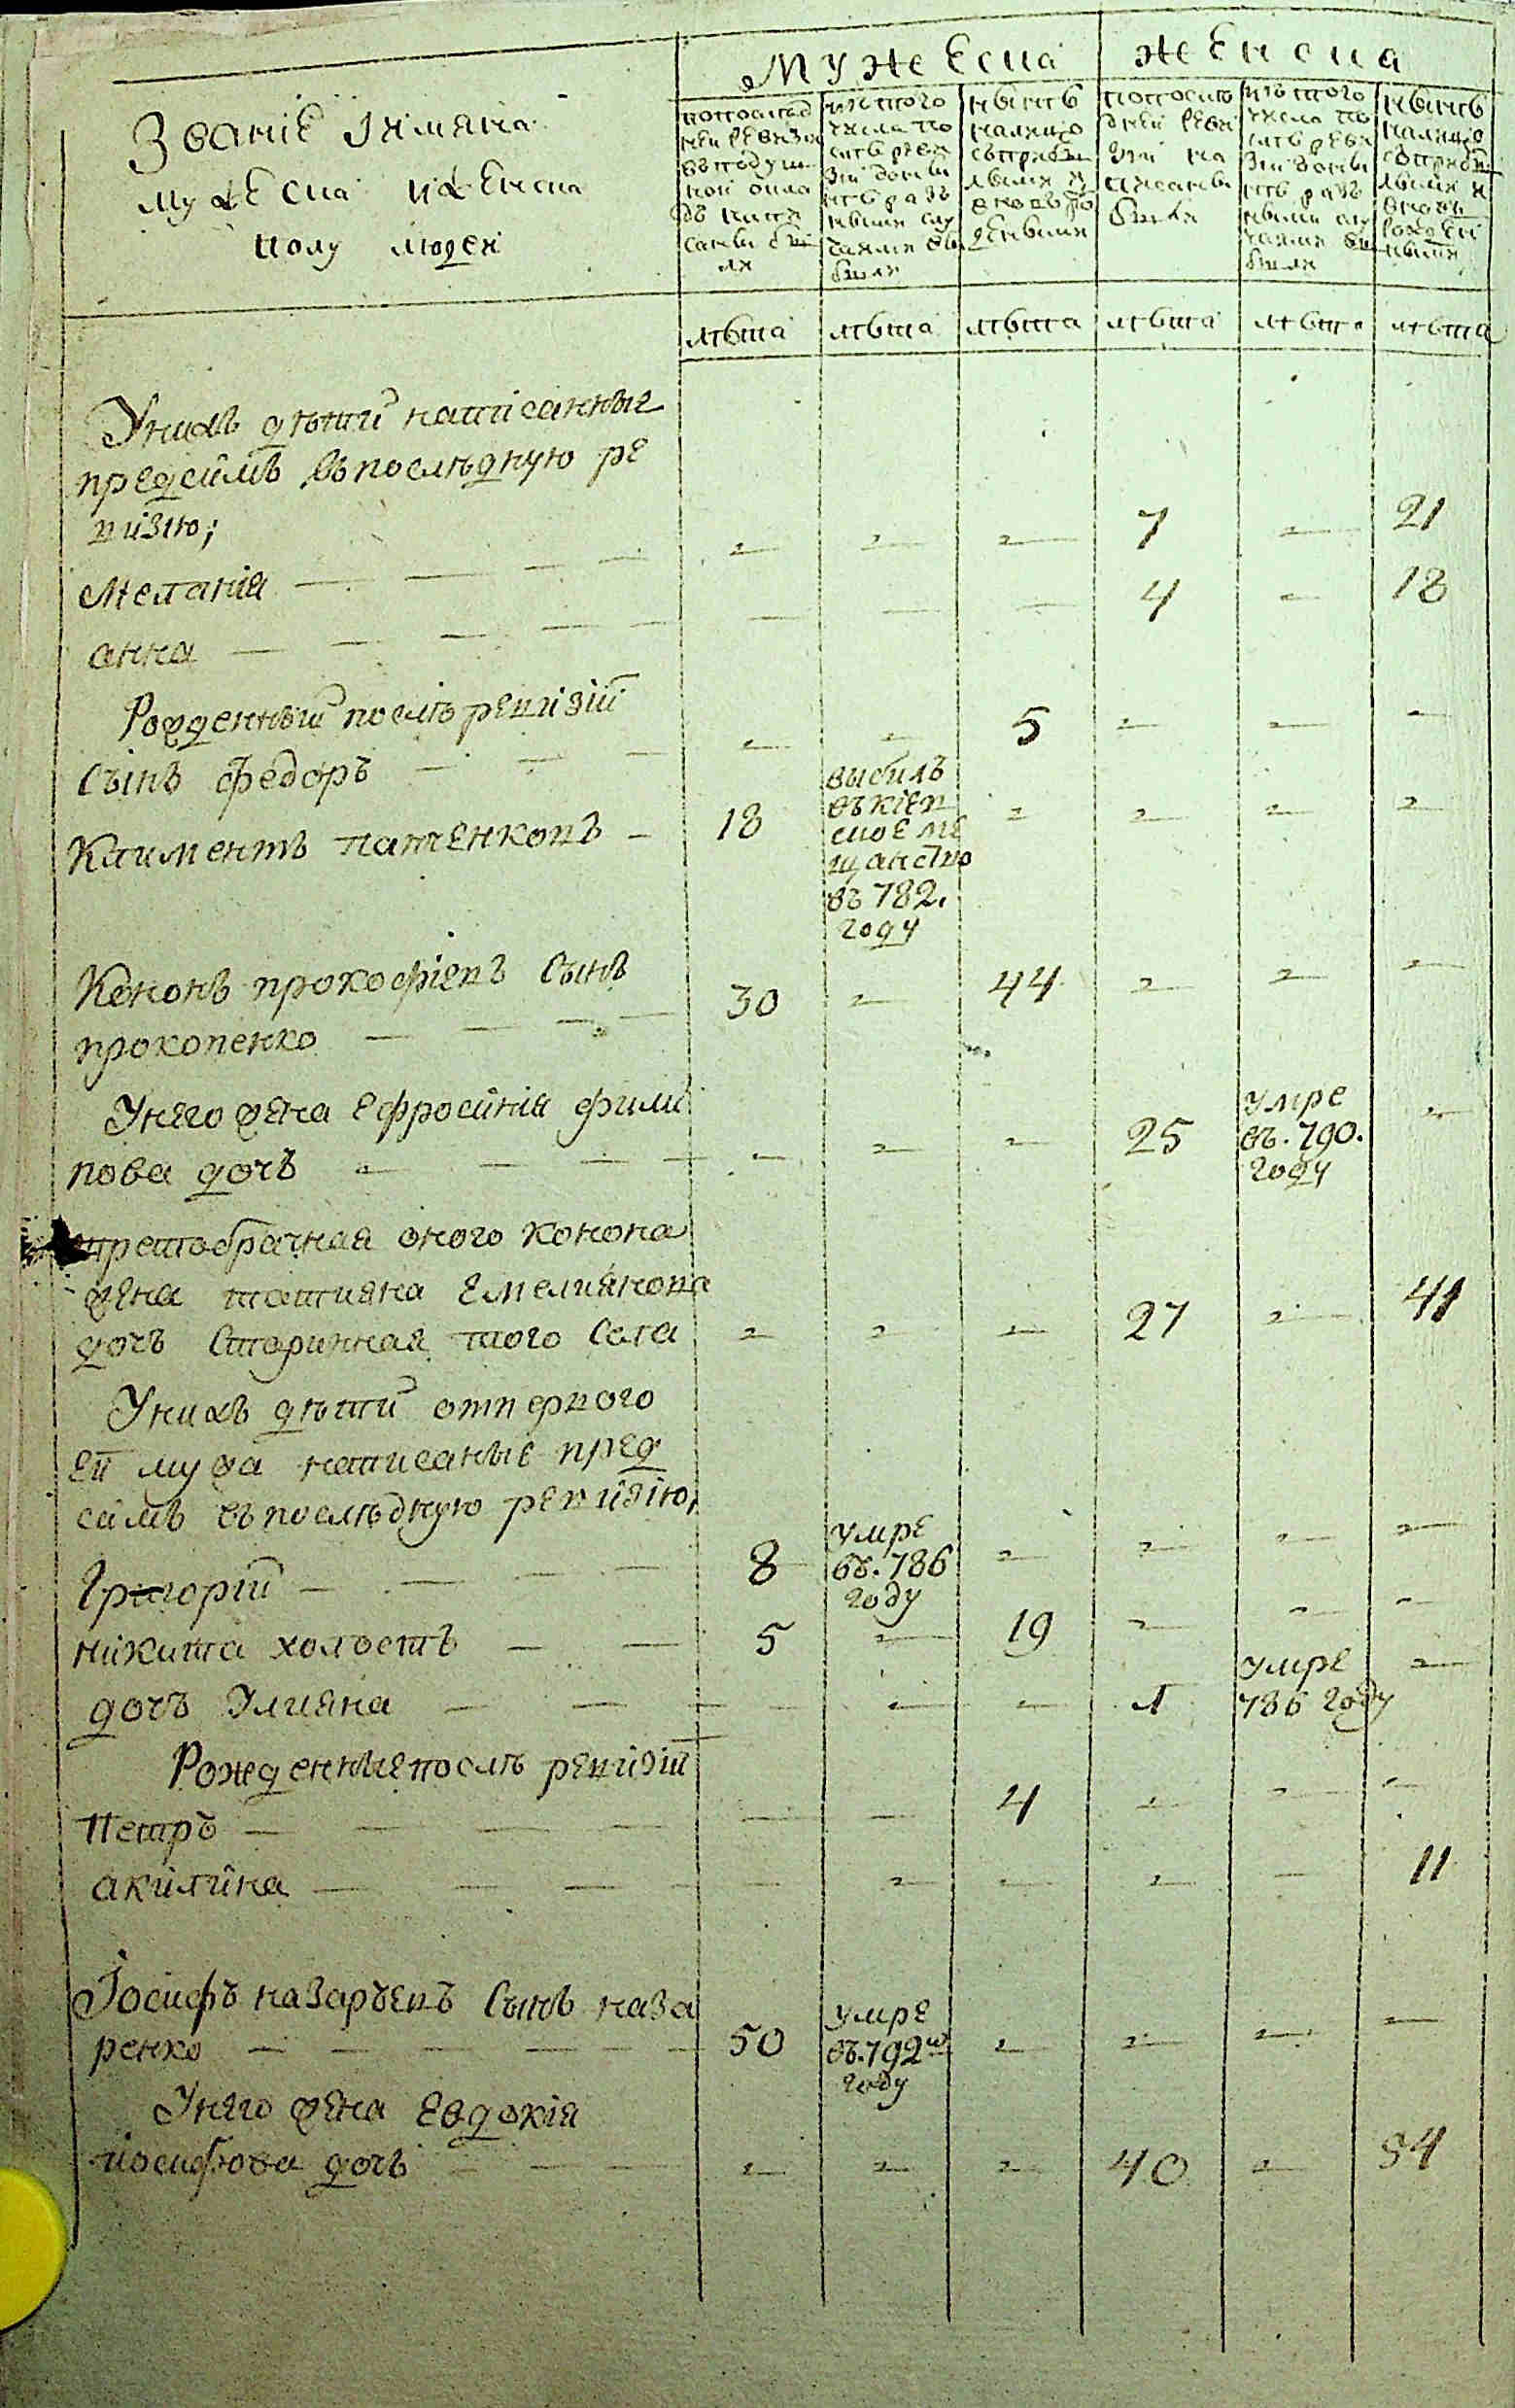 Мужеска
женска
Званіе Іимяна
мужеска иженска
полу людей
попослед
ней ревизіи
въподуш
ной окла
дъ напи
саны бы
ли
изтого
числа по
слѣ реви
зіи домы
нѣ разъ
ными слу
чаями вы
были
нынѣ
налицо
съприбы
лыми и
вновь ро
жденными
попослѣ
дней реви
зіи на
писаны
были
изтого
числа по
слѣ реви
зіи
разъ
ными слу
чаями вы
были
нынѣ
налицо
съприбы
лыми и
вновь
рожден
ными
лѣта лѣта лѣта лѣта лѣта лѣта
Унихъ дѣти написанные
предсимъ въпослѣдную ре
визію;
Меланія 7 21
анна 4 18
Рожденный послѣ ревизіи
Сынъ федоръ 5
Климентъ панченковъ 18
выбылъ
въкіев
ское ме
щанство
въ 782.
году
Кононъ прокофіевъ Сынъ
прокопенко 30 44
Унего жена Ефросинія фили
пова дочъ 25
умре
въ. 790.
году
претобрачная оного конона
жена татияна Емелиянова
дочъ Старинная того Села 27 41
Унихъ дѣти отпервого
ей мужа написаные пред
симъ въпослѣдную ревизію,
Григорій 8
умре
въ. 786
году
никита холостъ 5 19
дочъ Улияна 1
умре
786 году
Рожденные послѣ ревизіи
Петръ 4
акилина 11
Іосифъ назарьевъ Сынъ наза
ренко 50
умре
въ. 792м
году
Унего жена Евдокія
иосифова дочъ 40 54